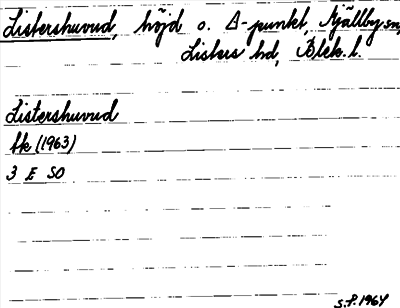 Listershuvud, höjd o. Δ-punkt, Mjällby sn,
Listers hd, Blek. l.
Listershuvud
Ek (1963)
3 E SO
S.F. 1964